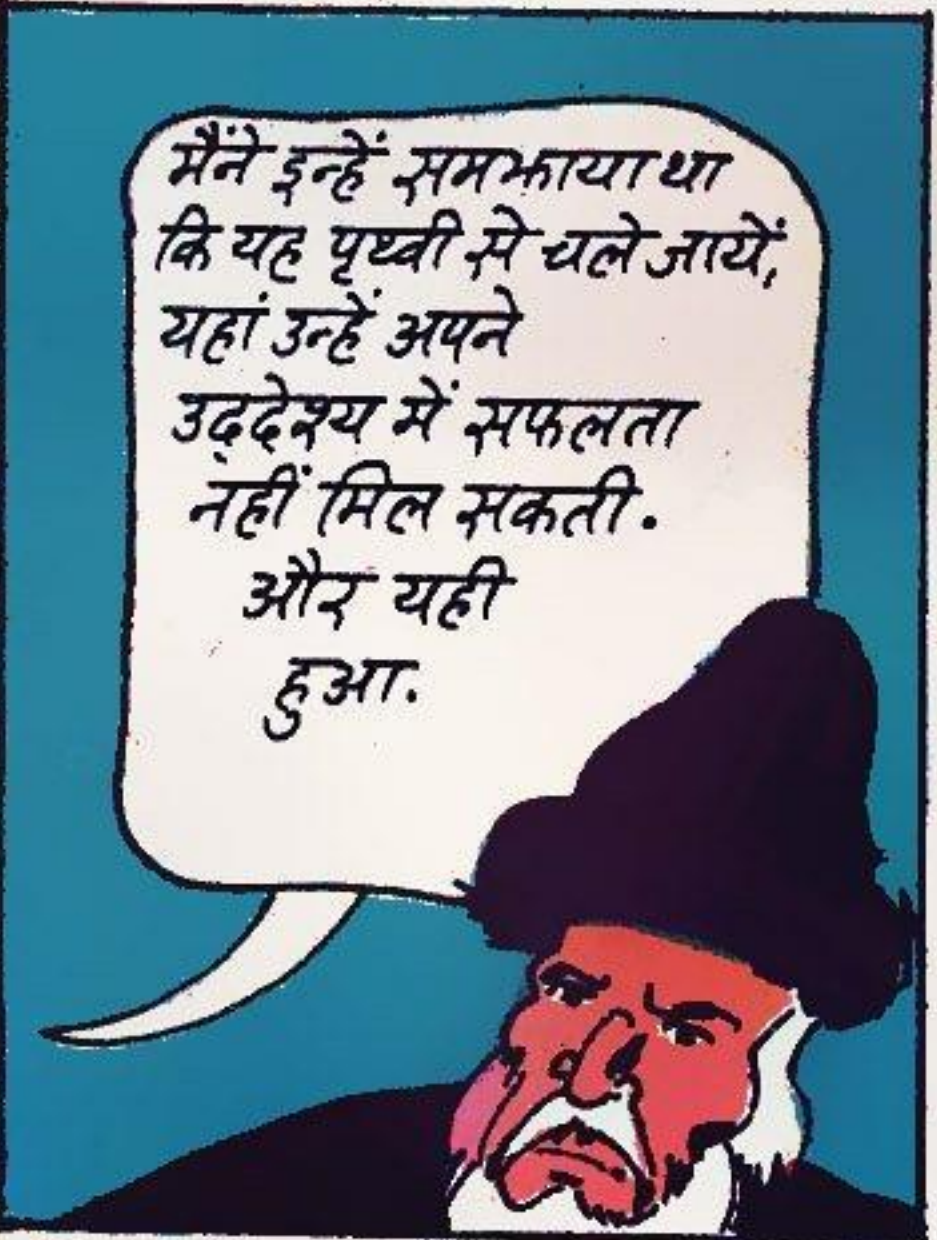 मैंने इन्हें समझाया था
कि यह पृथ्वी से चले जायें,
यहां उन्हें अपने
उद्देश्य में सफलता
नहीं मिल सकती.
और यही
हुआ.